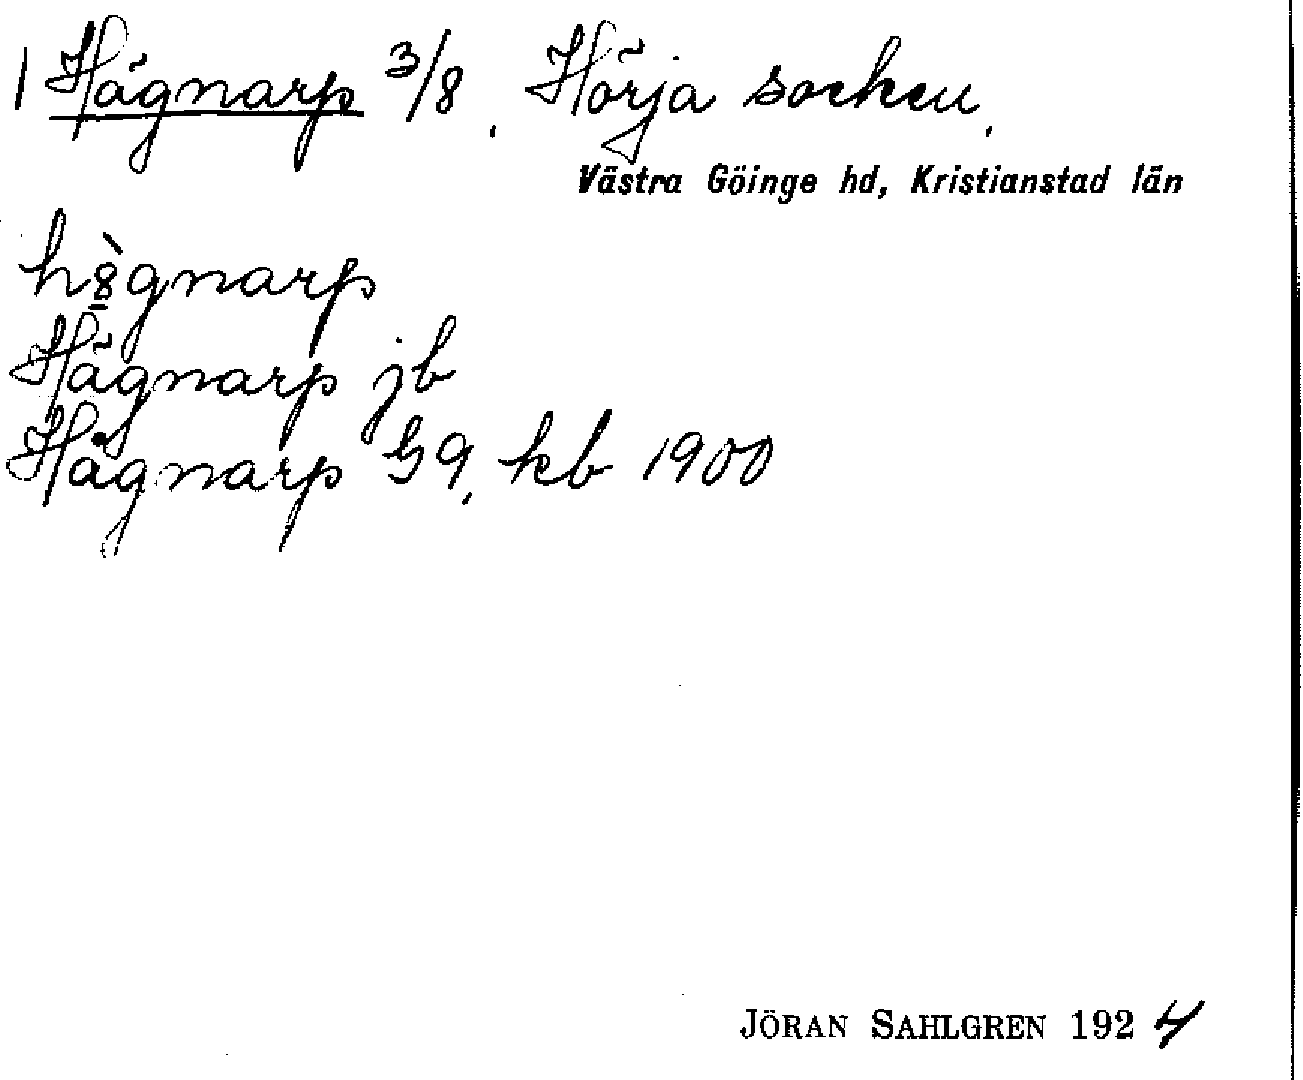 1 Hägnarp 3/8. Hörja socken.
Västra Göinge hd, Kristianstad län
Hägnarp jb
Hågnarp kb 1900
JÖRAN SAHLGREN 1924